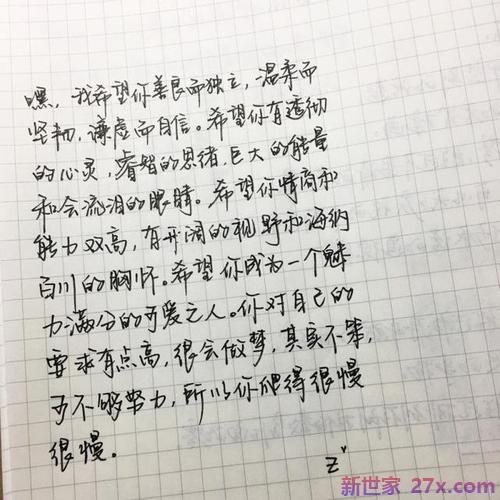 嘿，我希望你善良而独立，温柔而
坚韧，谦虚而自信。希望你有透彻
的心灵，睿智的思绪，巨大的能量
和会流泪的眼睛。希望你情商和
能力双高，有开阔的视野和海纳
百川的胸怀。希望你成为一个魅
力满分的可爱之人。你对自己的
要求有点高，很会做梦，其实不笨，
可不够努力，所以你爬得很慢
很慢。
新世家 27x.com